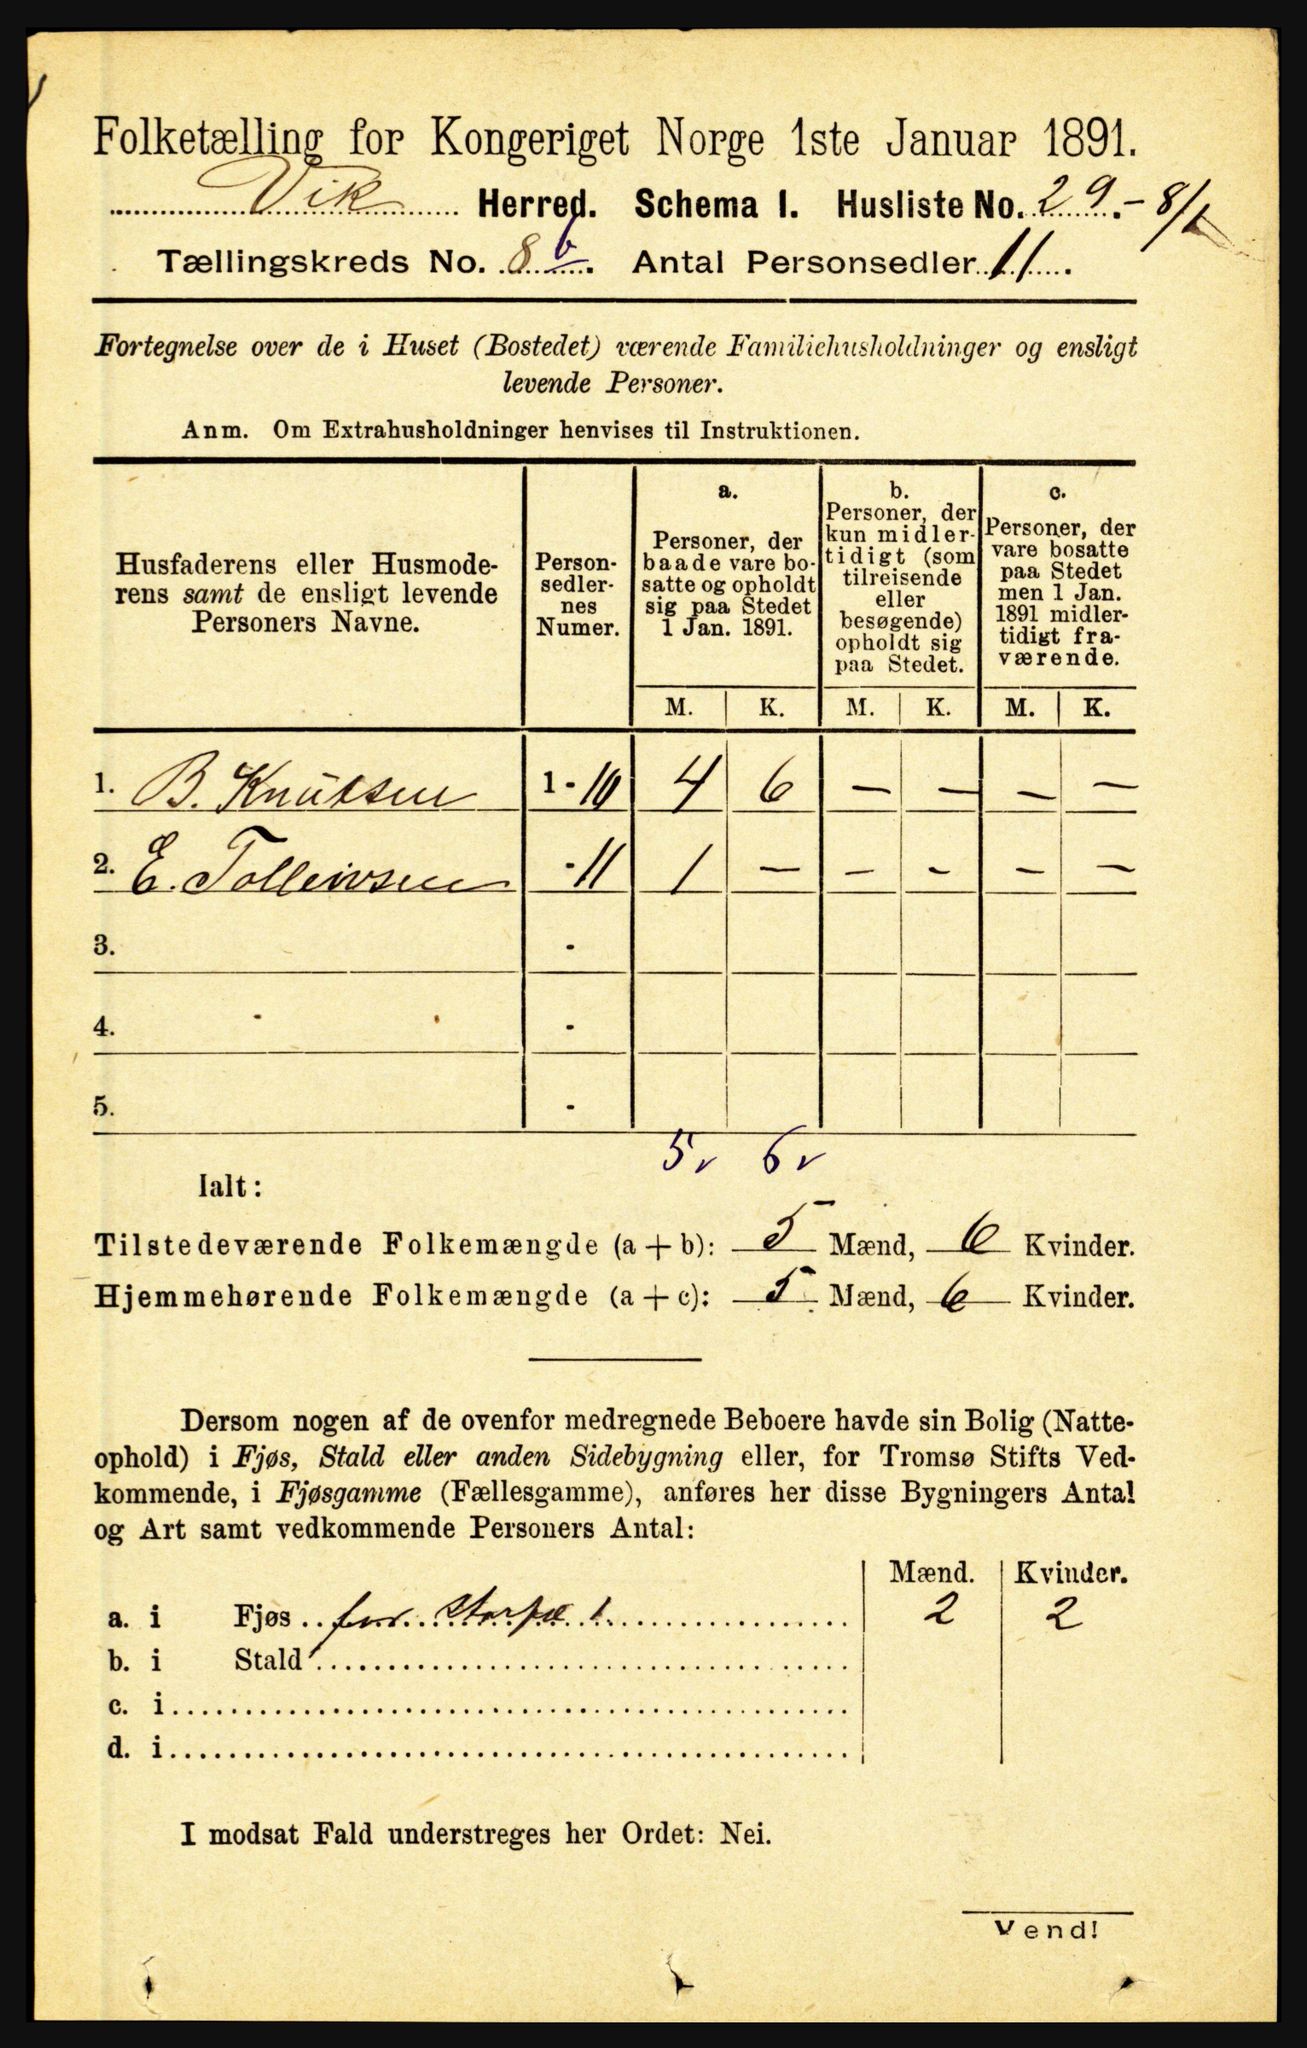 Folketælling for Kongeriget Norge 1ste Januar 1891.
Vik Herred. Schema I. Husliste No. 29.-8/1
Tællingskreds No. 8 b. Antal Personsedler 11.
Fortegnelse over de i Huset (Bostedet) værende Familiehusholdninger og ensligt
levende Personer.
Anm. Om Extrahusholdninger henvises til Instruktionen.
Husfaderens eller Husmode-
rens samt de ensligt levende
Personers Navne.
Person-
sedler-
nes
Numer.
a.
Personer, der
baade vare bo-
satte og opholdt
sig paa Stedet
1 Jan. 1891.
b.
Personer, der
kun midler-
tidigt (som
tilreisende
eller
besøgende)
opholdt sig
paa Stedet.
c.
Personer, der
vare bosatte
paa Stedet
men 1 Jan.
1891 midler-
tidigt fra-
værende.
M. K. M. K. M. K.
1. B. Knutsen 1-10 4 6 – – – –
2. E. Tolleivsen -11 1 – – – – –
3. -
4. -
5. -
5 6
Ialt:
Tilstedeværende Folkemængde (a + b): 5 Mænd, 6 Kvinder.
Hjemmehørende Folkemængde (a + c): 5 Mænd, 6 Kvinder.
Dersom nogen af de ovenfor medregnede Beboere havde sin Bolig (Natte-
ophold) i Fjøs, Stald eller anden Sidebygning eller, for Tromsø Stifts Ved-
kommende, i Fjøsgamme (Fællesgamme), anføres her disse Bygningers Antal
og Art samt vedkommende Personers Antal:
Mænd. Kvinder.
a. i Fjøs 1 2 2
b. i Stald
c. i
d. i
I modsat Fald understreges her Ordet: Nei.
Vend!